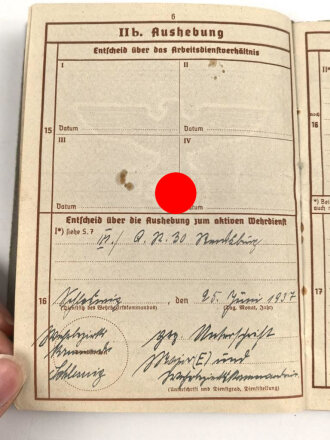 6
II b. Aushebung
Entscheid über das Arbeitsdienstverhältnis
I II
15
Datum Datum
III IV
Datum Datum
Entscheid über die Aushebung zum aktiven Wehrdienst
I*) siehe S. 7
III./ A. R. 30 Rendsburg
16 Schleswig, den 25. Juni 1937
(Tag, Monat, Jahr)
Wehrbezirks
kommando
Schleswig
gez. Unterschrift
Major (E) und
Wehrbezirkskommandeur
(Unterschrift und Dienstgrad, Dienststellung)
16
17